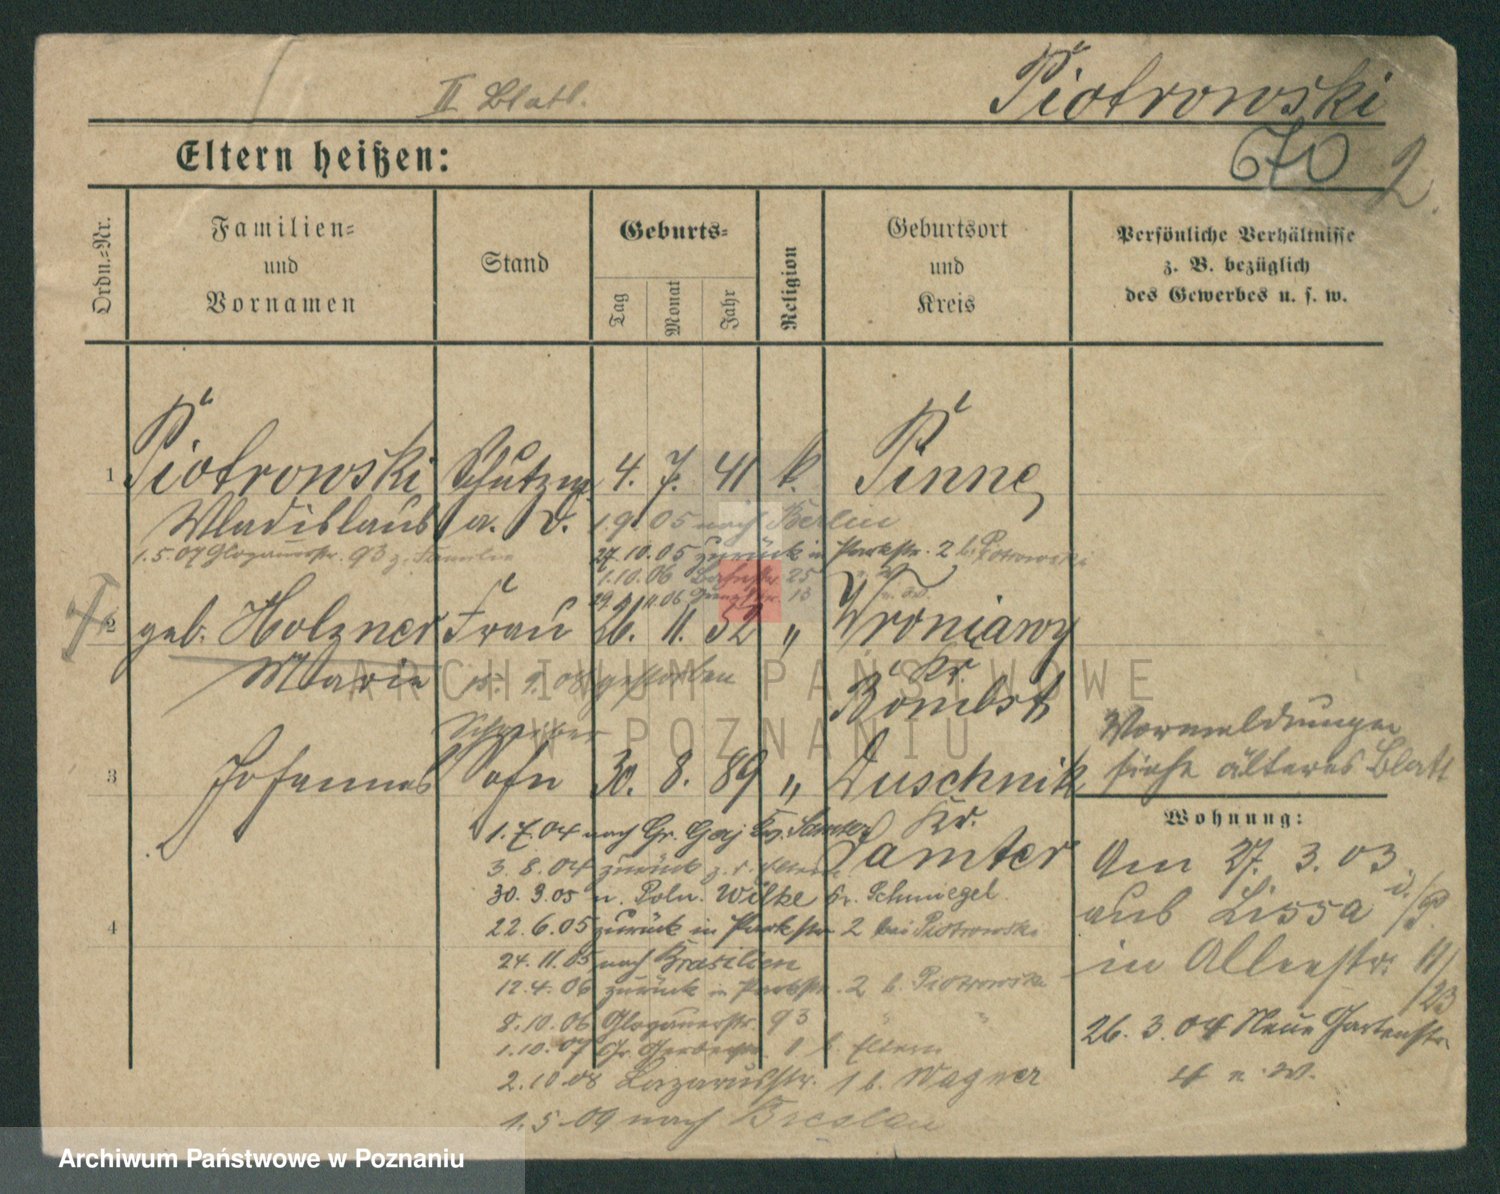 II Blatt.
Piotrowski
670 2
Eltern heißen:
Ordn.-Nr.
Familien-
und
Vornamen
Stand
Geburts-
Tag
Monat
Jahr
Religion
Geburtsort
und
Kreis
Persönliche Verhältnisse
z. B. bezüglich
des Gewerbes u. s. w.
1 Piotrowski Schutzm. 4. 7. 41 k. Pinne
Wladislaus a. D. 1.9.05 nach Berlin
1.5.07 Glogauerstr. 93 z. Familie
27.10.05 zurück in Parkstr. 2 b. Piotrowski
1.10.06 25
29.11.06 13
2 geb. Holzner Frau 26. 11. 52 " Wroniawy
Marie 15. 9. 08 gestorben Kr.
Bomst
Schreiber
3 Johannes Sohn 30. 8. 89 " Duschnik
Kr.
Samter
1.7.04 nach Gr. Gaj Kr. Samter
3.8.04 zurück z. d. Eltern
30.3.05 n. Poln. Wilke Kr. Schmiegel
4 22.6.05 zurück in Parkstr. 2 bei Piotrowski
24.11.05 nach Brasilien
12.4.06 zurück in Parkstr. 2 b. Piotrowski
8.10.06 Glogauerstr. 93 " "
1.10.07 Gr. Gerberstr. b. Eltern
2.10.08 Lazarusstr. 1 b. Wagner
1.5.09 nach Breslau
Vormeldungen
siehe älteres Blatt
Wohnung:
Am 27. 3. 03
aus Lissa i./P.
in Alleestr. 11/
/23
26. 3. 04 Neue Gartenstr.
4 n. W.
ARCHIWUM PAŃSTWOWE
W POZNANIU
Archiwum Państwowe w Poznaniu